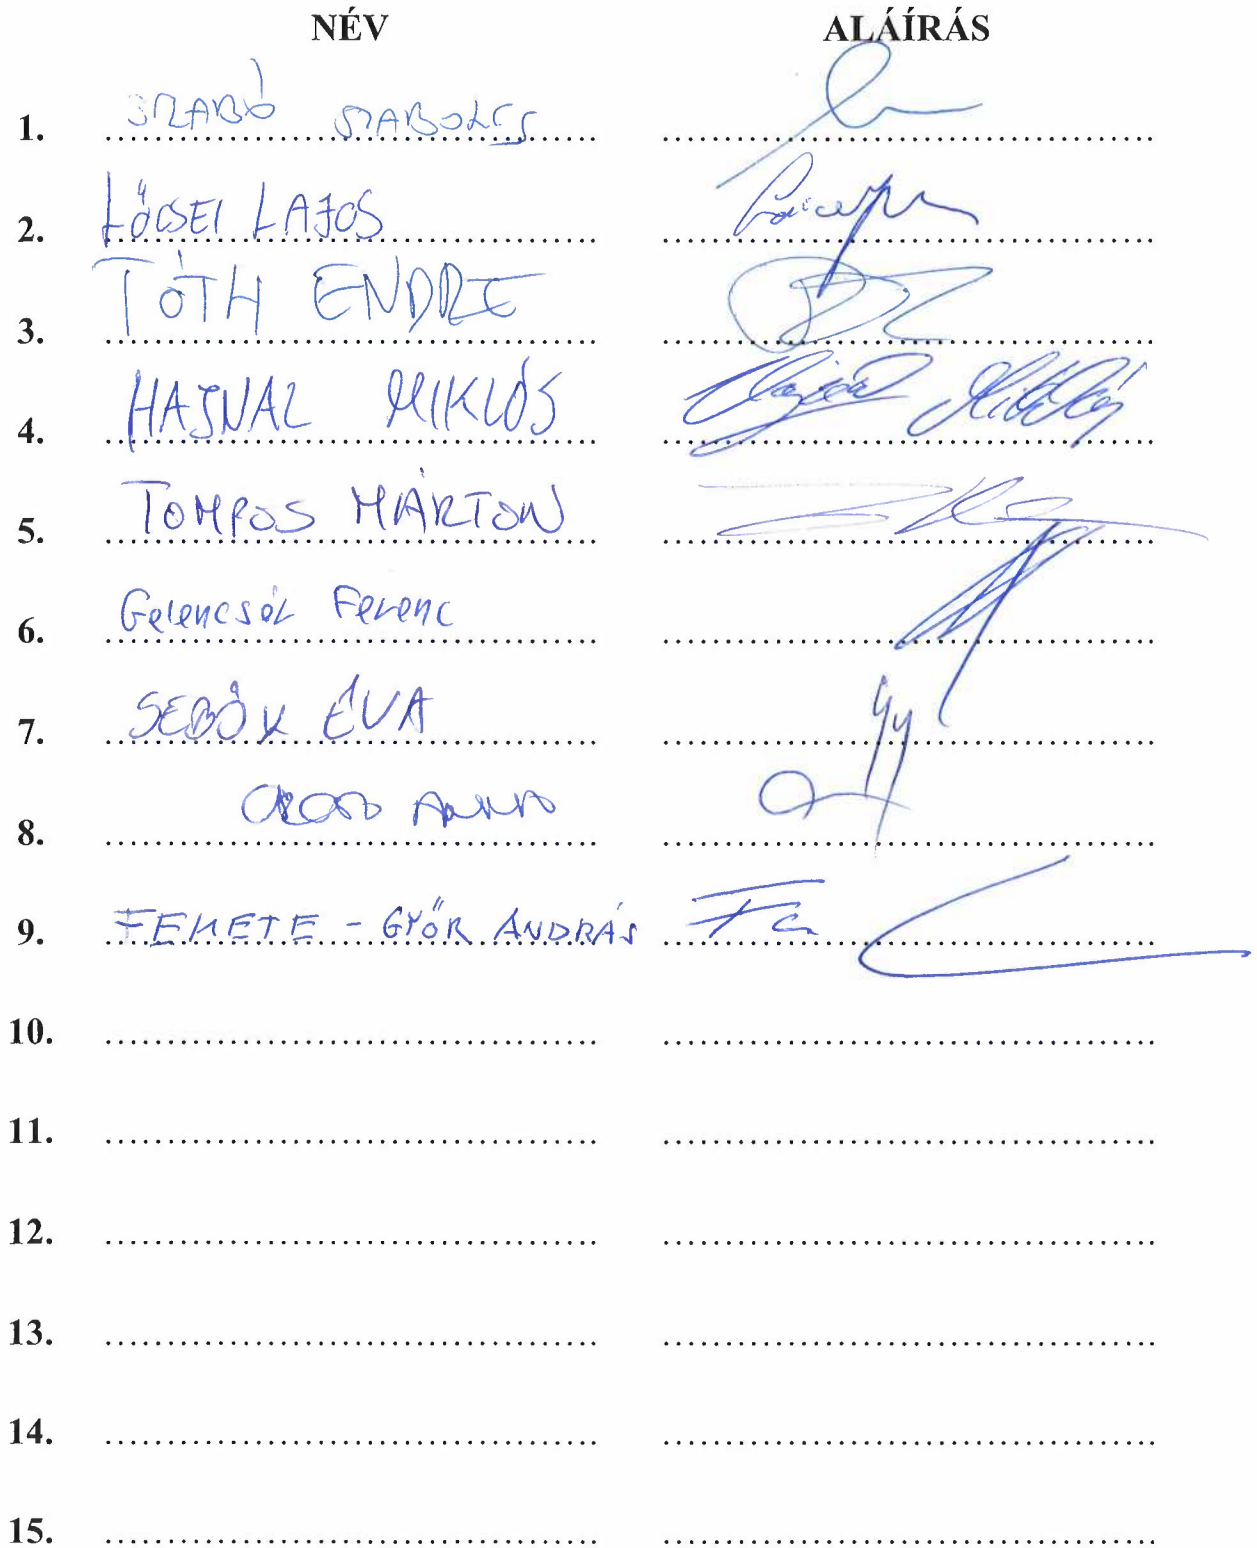 NÉV ALÁÍRÁS
1. SZABÓ SZABOLCS
2. LŐCSEI LAJOS
3. TÓTH ENDRE
4. HAJNAL MIKLÓS Hajnal Miklós
5. TOMPOS MÁRTON
6. Gelencsér Ferenc
7. SEBŐK ÉVA
8. OROSZ ANNA
9. FEKETE - GYŐR ANDRÁS
10.
11.
12.
13.
14.
15.